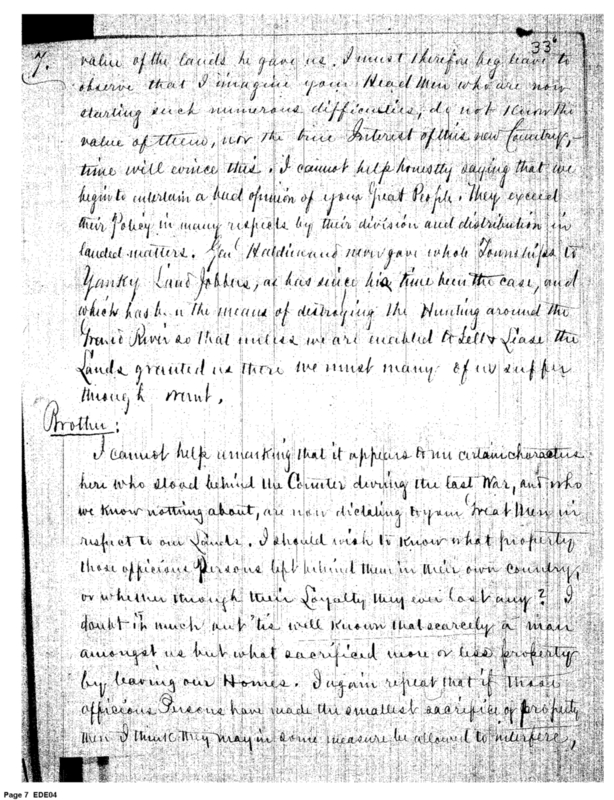 33
7. value of the lands he gave us. I must therefore beg leave to
observe that I imagine your Head Men who are now
starting such numerous difficulties, do not know the
value of them, nor the true Interest of this new Country,
time will evince this. I cannot help honestly saying that we
begin to entertain a bad opinion of your Great People. They exceed
their Policy in many respects by their division and distribution in
landed matters. Genl Haldimand never gave whole Townships to
Yanky Land Jobbers, as has since his time been the case, and
which has been the means of destroying the Hunting around the
Grand River so that unless we are enabled to Sell & Lease the
Lands granted us there we must many of us suffer
through want.
Brother:
I cannot help remarking that it appears to me certain characters
here who stood behind the Counter during the last War, and who
we know nothing about, are now dictating to your Great Men in
respect to our Lands. I should wish to know what property
those officious Persons left behind them in their own country,
or whether through their Loyalty they ever lost any? I
doubt it much but 'tis well known that scarcely a man
amongst us but what sacrificed more or less property
by leaving our Homes. I again repeat that if these
officious Persons have made the smallest sacrifice of property
then I think they may in some measure be allowed to interfere,
Page 7 EDE04